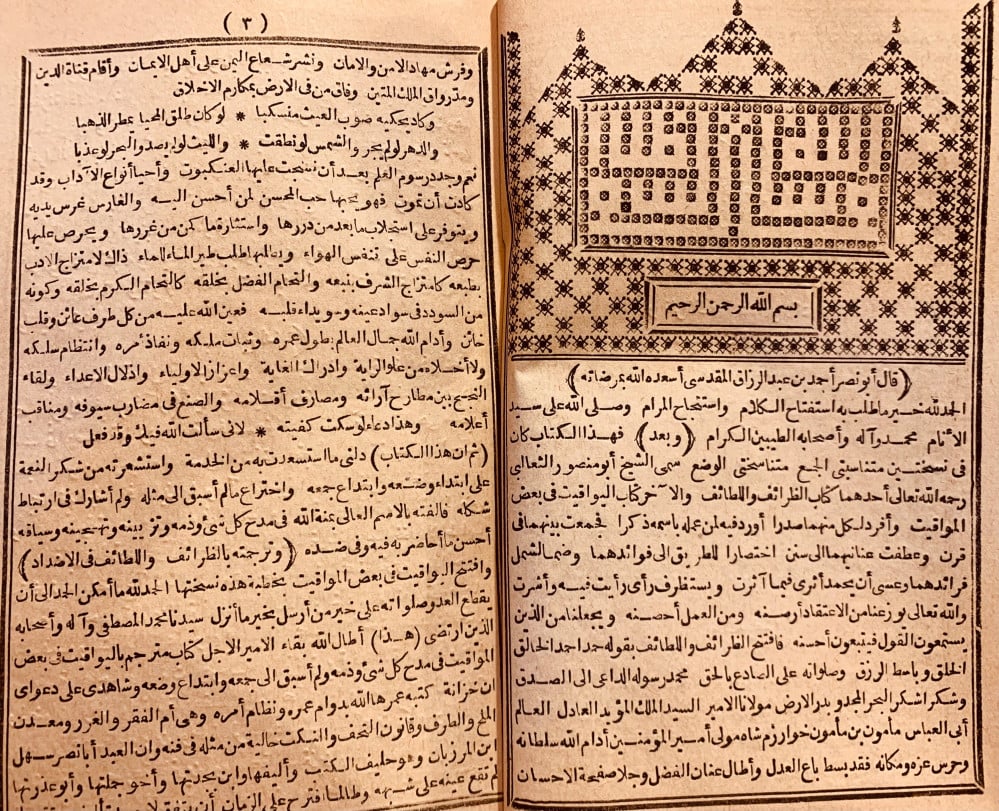 بسم الله الرحمن الرحيم
(قال أبو نصر أحمد بن عبد الرزاق المقدسي أسعده الله بمرضاته)
الحمد لله خير ما طلب به استفتاح الكلام واستنجاح المرام وصلى الله على سيد
الأنام محمد وآله وأصحابه الطيبين الكرام (وبعد) فهذا الكتاب كان
في نسختين متناسبتي الجمع متناسختي الوضع سمى الشيخ أبو منصور الثعالبي
رحمه الله تعالى أحدهما كتاب الظرائف واللطائف والآخر كتاب اليواقيت في بعض
المواقيت وأفرد لكل منهما صدرا أورد فيه لمن عمله باسمه ذكرا فجمعت بينهما في
قرن وعطفت عنانيهما الى سنن اختصارا للطريق الى فوائدهما وضما لشمل
فرائدهما وعسى أن يحمد أثرى فيما آثرت ويستظرف رأى رأيت فيه وأشرت
والله تعالى يوزعنا من الاعتقاد أرصنه ومن العمل أحصنه ويجعلنا من الذين
يستمعون القول فيتبعون أحسنه فافتتح الظرائف واللطائف بقوله حمدا حمد الخالق
الخلق وباسط الرزق وصلواته على الصادع بالحق محمد رسوله الداعي الى الصدق
وشكرا شكر البحر المجد وبدر الارض مولانا الامير السيد الملك المؤيد العادل العالم
أبي العباس مأمون بن مأمون خوارزم شاه مولى أمير المؤمنين أدام الله سلطانه
وحرس عزه ومكانه فقد بسط باع العدل وأطال عنان الفضل وجلا صفيحة الاحسان
(٣)
وفرش مهاد الامن والامان ونشر شعاع اليمن على أهل الايمان وأقام قناة الدين
ومد رواق الملك المتين وفاق من في الارض بمكارم الاخلاق
وكاد يحكيه صوب الغيث منسكبا * لو كان طلق المحيا يمطر الذهبا
والدهر لو لم يجر والشمس لو نطقت * والليث لو لم يصد والبحر لو عذبا
نعم وجدد رسوم العلم بعد أن نسجت عليها العنكبوت وأحيا أنواع الآداب وقد
كادت أن تموت فهو يحبها حب المحسن لمن أحسن اليه والغارس غرس يديه
ويتوفر على استجلاب ما بعد من دررها واستثارة ما كمن من غررها ويحرص عليها
حرص النفس على تنفس الهواء ويطالبها طلب طير الماء للماء ذلك لامتزاج الادب
بطبعه كامتزاج الشرف بنبعه والتحام الفضل بخلقه كالتحام الكرم بخلقه وكونه
من السودد في سواد عينه وسويداء قلبه فعين الله عليه من كل طرف عائن وقلب
خائن وأدام الله جمال العالم بطول عمره وثبات ملكه ونفاذ أمره وانتظام سلكه
ولا أخلاه من علو الراية وادراك الغاية واعزاز الاولياء واذلال الاعداء ولقاء
النجح بين مطارح آرائه ومصارف أقلامه والصنع في مضارب سيوفه ومناقب
أعلامه وهذا دعاء لو سكت كفيته * لاني سألت الله فيك وقد فعل
(ثم ان هذا الكتاب) دلني ما استسعدت به من الخدمة واستشعرته من شكر النعمة
على ابتداء وضعه وابتداع جمعه واختراع ما لم أسبق الى مثله ولم أشارك في ارتباط
شكله فألفته بالاسم العالي بمنة الله في مدح كل شئ وذمه وتزيينه وتهجينه وسياقه
أحسن ما أحاضر به فيه وفي ضده (وترجمته بالظرائف واللطائف في الاضداد)
وافتتح اليواقيت في بعض المواقيت بخطبة هذه نسختها الحمد لله ما أمكن الحمد الى أن
يقطع العد وصلواته على خير من أرسل بخير ما أنزل سيدنا محمد المصطفى وآله وأصحابه
الذين ارتضى (هذا) أطال الله بقاء الامير الاجل كتاب مترجم باليواقيت في بعض
المواقيت في مدح كل شئ وذمه ولم أسبق الى جمعه وابتداع وضعه وشاهدى على دعواى
ان خزانة كتبه عمرها الله بدوام عمره ونظام أمره وهي أم الفقر والغرر ومعدن
الملح والطرف وقانون التحف والنكت خالية من مثله في فنه وان العبد أبا نصر سهل
ابن المرزبان وهو حليف الكتب وأليفها وابن بجدتها وأخو جملتها وأبو عذرتها
لم تقع عينه على شبهه وطالما اقترح على الزمان أن